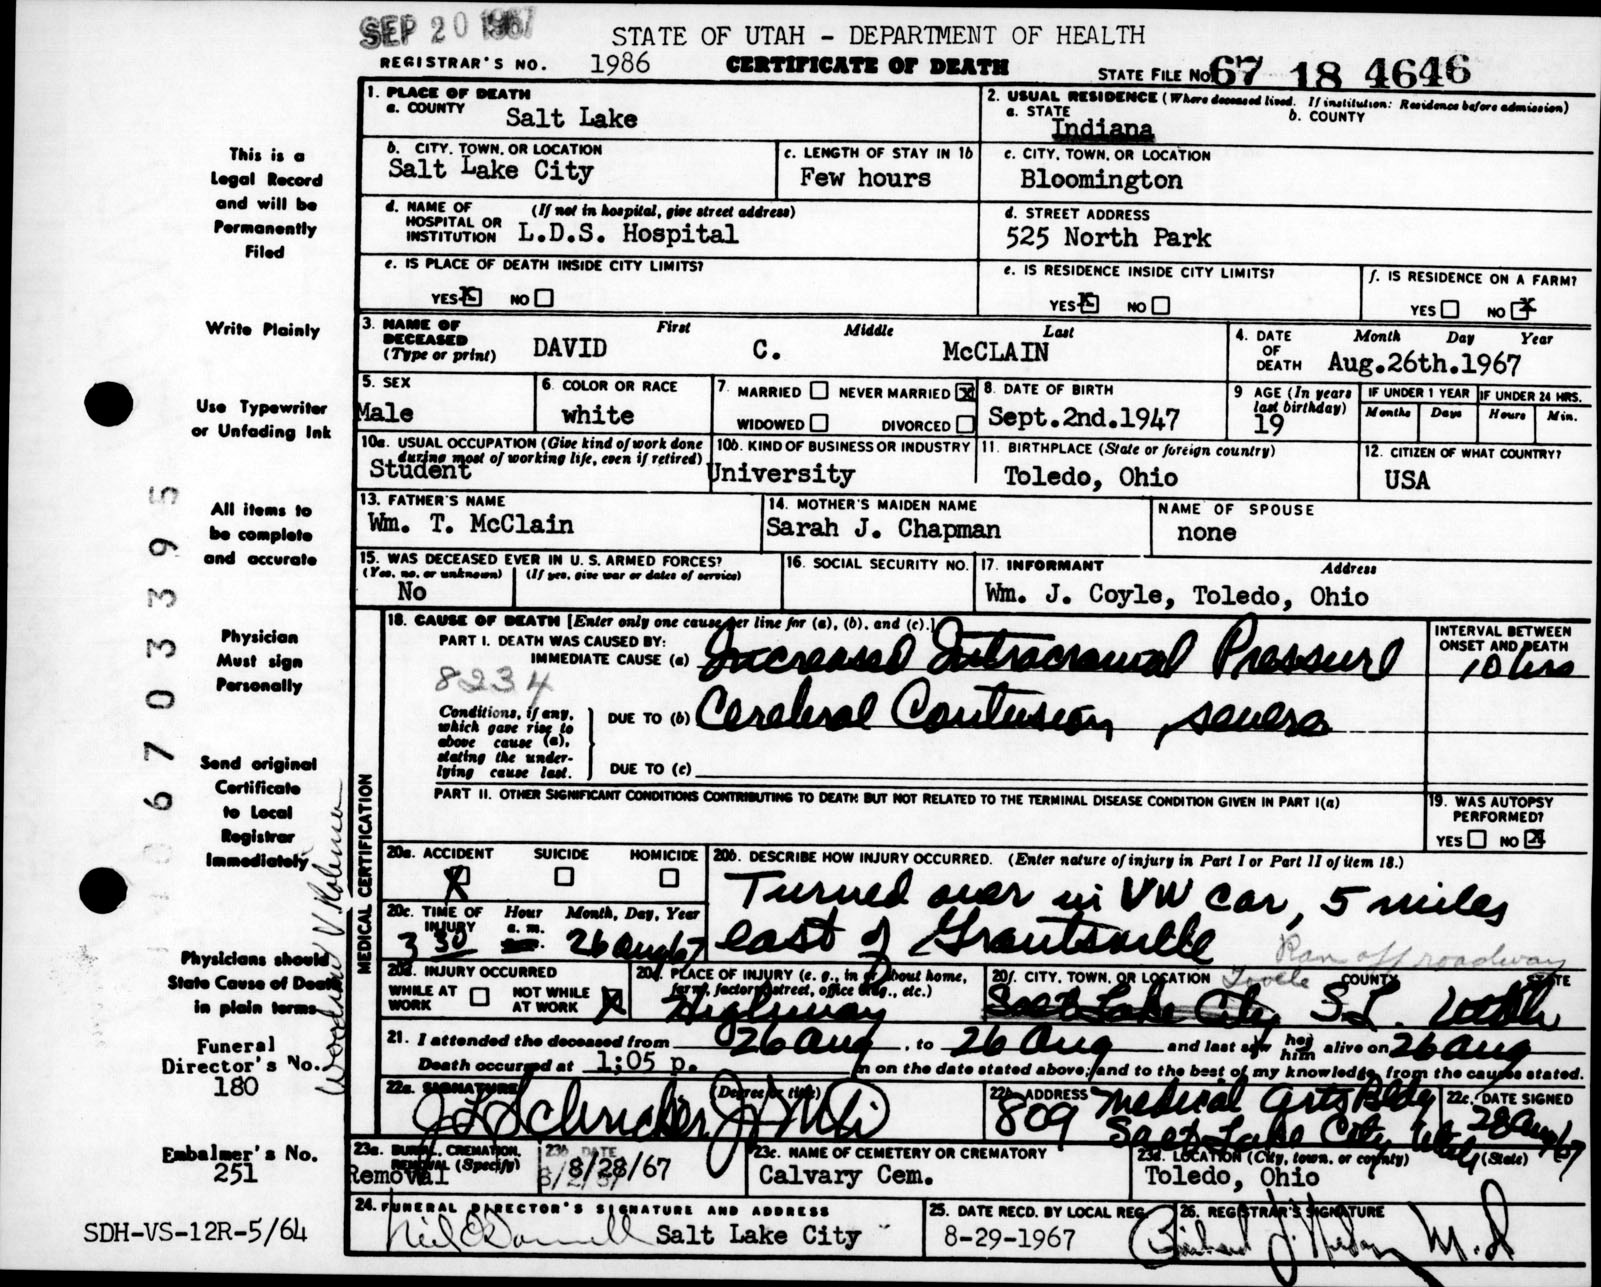 SEP 20 1967
STATE OF UTAH - DEPARTMENT OF HEALTH
REGISTRAR'S NO. 1986 CERTIFICATE OF DEATH STATE FILE No 67 18 4646
This is a Legal Record and will be Permanently Filed
Write Plainly
Use Typewriter or Unfading Ink
All items to be complete and accurate
Physician Must sign Personally
Send original Certificate to Local Registrar Immediately
Physicians should State Cause of Death in plain terms
Funeral Director's No. 180
Embalmer's No. 251
SDH-VS-12R-5/64
067033395
1. PLACE OF DEATH
a. COUNTY Salt Lake
2. USUAL RESIDENCE (Where deceased lived. If institution: Residence before admission)
a. STATE Indiana b. COUNTY
b. CITY, TOWN, OR LOCATION Salt Lake City
c. LENGTH OF STAY IN 1b Few hours
c. CITY, TOWN, OR LOCATION Bloomington
d. NAME OF HOSPITAL OR INSTITUTION (If not in hospital, give street address) L.D.S. Hospital
d. STREET ADDRESS 525 North Park
e. IS PLACE OF DEATH INSIDE CITY LIMITS? YES X NO
e. IS RESIDENCE INSIDE CITY LIMITS? YES X NO
f. IS RESIDENCE ON A FARM? YES NO X
3. NAME OF DECEASED (Type or print) First Middle Last
DAVID C. McCLAIN
4. DATE OF DEATH Month Day Year
Aug.26th.1967
5. SEX Male
6. COLOR OR RACE white
7. MARRIED NEVER MARRIED X WIDOWED DIVORCED
8. DATE OF BIRTH Sept.2nd.1947
9 AGE (In years last birthday) 19
IF UNDER 1 YEAR Months Days
IF UNDER 24 HRS. Hours Min.
10a. USUAL OCCUPATION (Give kind of work done during most of working life, even if retired) Student
10b. KIND OF BUSINESS OR INDUSTRY University
11. BIRTHPLACE (State or foreign country) Toledo, Ohio
12. CITIZEN OF WHAT COUNTRY? USA
13. FATHER'S NAME Wm. T. McClain
14. MOTHER'S MAIDEN NAME Sarah J. Chapman
NAME OF SPOUSE none
15. WAS DECEASED EVER IN U. S. ARMED FORCES?
(Yes, no, or unknown) (If yes, give war or dates of service)
No
16. SOCIAL SECURITY NO.
17. INFORMANT Address
Wm. J. Coyle, Toledo, Ohio
18. CAUSE OF DEATH [Enter only one cause per line for (a), (b), and (c).]
PART I. DEATH WAS CAUSED BY:
IMMEDIATE CAUSE (a) Increased Intracranial Pressure
8234
INTERVAL BETWEEN ONSET AND DEATH 10 hrs
Conditions, if any, which gave rise to above cause (a), stating the underlying cause last.
DUE TO (b) Cerebral Contusion, severe
DUE TO (c)
PART II. OTHER SIGNIFICANT CONDITIONS CONTRIBUTING TO DEATH BUT NOT RELATED TO THE TERMINAL DISEASE CONDITION GIVEN IN PART I(a)
19. WAS AUTOPSY PERFORMED? YES NO X
MEDICAL CERTIFICATION
20a. ACCIDENT X SUICIDE HOMICIDE
20b. DESCRIBE HOW INJURY OCCURRED. (Enter nature of injury in Part I or Part II of item 18.)
Turned over in VW car, 5 miles
east of Grantsville
Ran off roadway
20c. TIME OF INJURY Hour a. m. Month, Day, Year
3 30 26 Aug 67
20d. INJURY OCCURRED
WHILE AT WORK NOT WHILE AT WORK X
20e. PLACE OF INJURY (e. g., in or about home, farm, factory, street, office bldg., etc.)
Highway
20f. CITY, TOWN, OR LOCATION COUNTY STATE
Tooele
Salt Lake City S.L. Utah
21. I attended the deceased from 26 Aug, to 26 Aug and last saw her him alive on 26 Aug
Death occurred at 1;05 p. m on the date stated above; and to the best of my knowledge, from the causes stated.
22a. SIGNATURE (Degree or title)
22b. ADDRESS 809 Medical Arts Bldg
Salt Lake City Utah
22c. DATE SIGNED 28 Aug 67
23a. BURIAL, CREMATION, REMOVAL (Specify) Removal
23b DATE 8/28/67
23c. NAME OF CEMETERY OR CREMATORY Calvary Cem.
23d. LOCATION (City, town, or county) (State)
Toledo, Ohio
24. FUNERAL DIRECTOR'S SIGNATURE AND ADDRESS
Neil O'Donnell Salt Lake City
25. DATE RECD. BY LOCAL REG. 8-29-1967
26. REGISTRAR'S SIGNATURE
M.D